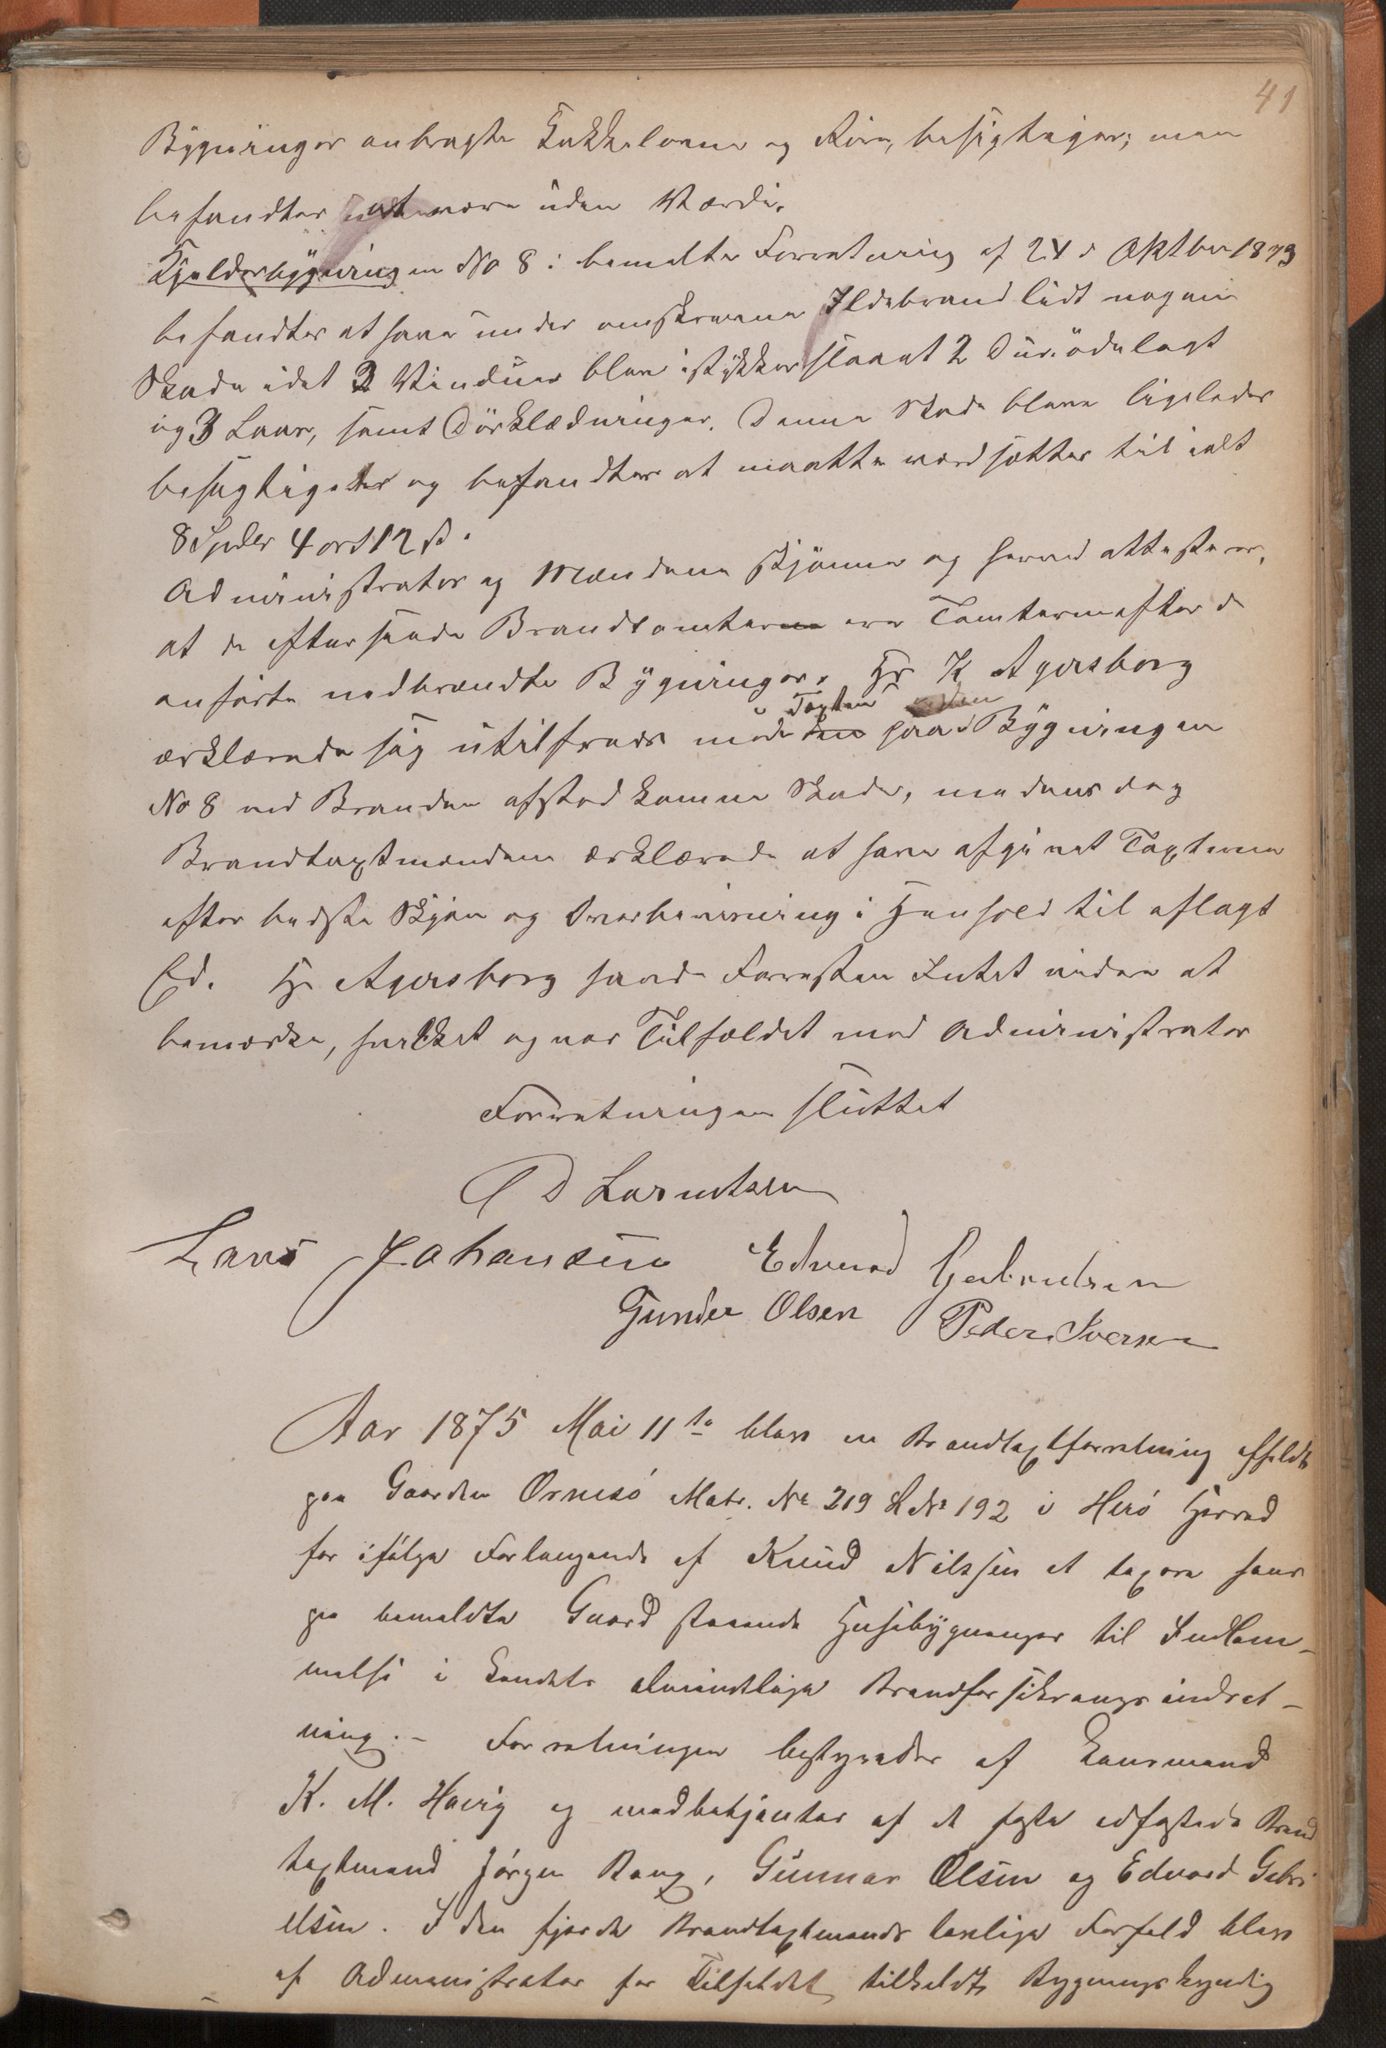 41
Bygninger anbragte Kakkelovne og Rør, besigtiges; men
befandtes at være uden Værdi.
Fjeldsbygningen No 8 i bemeldte Forretning af 24 d Oktbr 1873
befandtes at have under omskrevne Ildebrand lidt nogen
Skade idet 2 Vinduer blev istykkerslaaet 2 Dør ödelagt
og 3 Laase, samt Dörklædninger. Denne Skade bleve ligeledes
besigtigedes og befandtes at maatte værdsættes til ialt
8 Spdlr 4 ort 12 s.
Administrator og Mændene skjönner og herved attesterer,
at de eftersende Brandtomterne ere Tomterne efter de
anförte nedbrændte Bygninger. Hr K Agersborg
i Taxten
erklærede sig utilfreds med den paa Bygningen
No 8 ved Branden afstedkomne Skade, medens dog
Brandtaxtmændene erklærede at have afgivet Taxterne
efter bedste Skjön og Overbeviisning i Henhold til aflagt
Ed. Hr Agersborg havde Forresten Intet videre at
bemærke, hvilket og var Tilfældet med Administrator
Forretningen sluttet
D Lorentsen
Lars Johansen Edvard Gabrielsen
Gunder Olsen Peder Iversen
Aar 1875 Mai 11te blev en Brandtaxtforretning afholdt
paa Gaarden Ornesö Matr. No 219 L No 192 i Herö Herred
for ifølge Forlangende af Knud Nilssen at taxere hans
paa bemeldte Gaard staaende Husebygninger til Indlem-
melse i Landets almindelige Brandforsikrings indret-
ning. - Forretningen bestyredes af Lensmand
K. M. Havig og medbetjentes af de faste edfæstede Brand
taxtmænd Jörgen Rang, Gunnar Olsen og Edvard Gabri
elsen. I den fjerde Brandtaxtmands lovlige Forfald blev
af Administrator for Tilfeldet tilkaldt Bygningskyndig